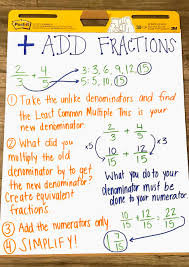 Post-it
+ ADD FRACTIONS
2/3 + 4/5
3: 3, 6, 9, 12, 15
5: 5, 10, 15
① Take the unlike denominators and find
the Least Common Multiple This is your
new denominator.
② What did you
multiply the old
denominator by to get
the new denominator?
Create equivalent
fractions
×5 2/3 + 4/5 ×3
10/15 + 12/15
What you do to your
denominator must
be done to your numerator.
③ Add the numerators only
10/15 + 12/15 = 22/15
④ SIMPLIFY!
1 7/15